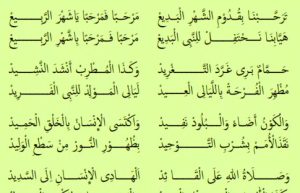 تَرَحَّبْنَا بِقُدُومِ الشَّهْرِ الْبَدِيعْ مَرْحَبًا مَرْحَبًا يَاشَهْرَ الرَّبِيعْ
هَيَّابِنَا نَحْتَفِلْ لِلنَّبِى الْبَدِيعْ مَرْحَبًا فَمَرْحَبًا بِاشَهْرِ الرَّبِيعْ
حَمَامٌ بَرِى غَرَّدَ التَّغْرِيدْ وَكَذَا الْمُطْرِبُ أَنْشَدَ النَّشِيدْ
مُظْهِرَ الْفَرْحَةْ بِاللَّيَالِى الْعِيدْ لَيَالِى الْمَوْلِدْ لِلنَّبِى الْفَرِيدْ
وَالْكَوْنُ أَضَاءَ وَالْبُلُودُ تَفِيدْ وَاكْتَسَى الْإِنْسَانُ بِالْخَلْقِ الْحَمِيدْ
نَقَذَ الْأُمَمْ بِشُرْبِ التَّوْحِيدْ بِظُهُورِ النُّورْ مِنْ سَطْعِ الْوَلِيدْ
وَصَلَاةُ اللهِ عَلَى الْقَائِدْ الْهَادِى الْإِنْسَانِ إِلَى السَّدِيدْ